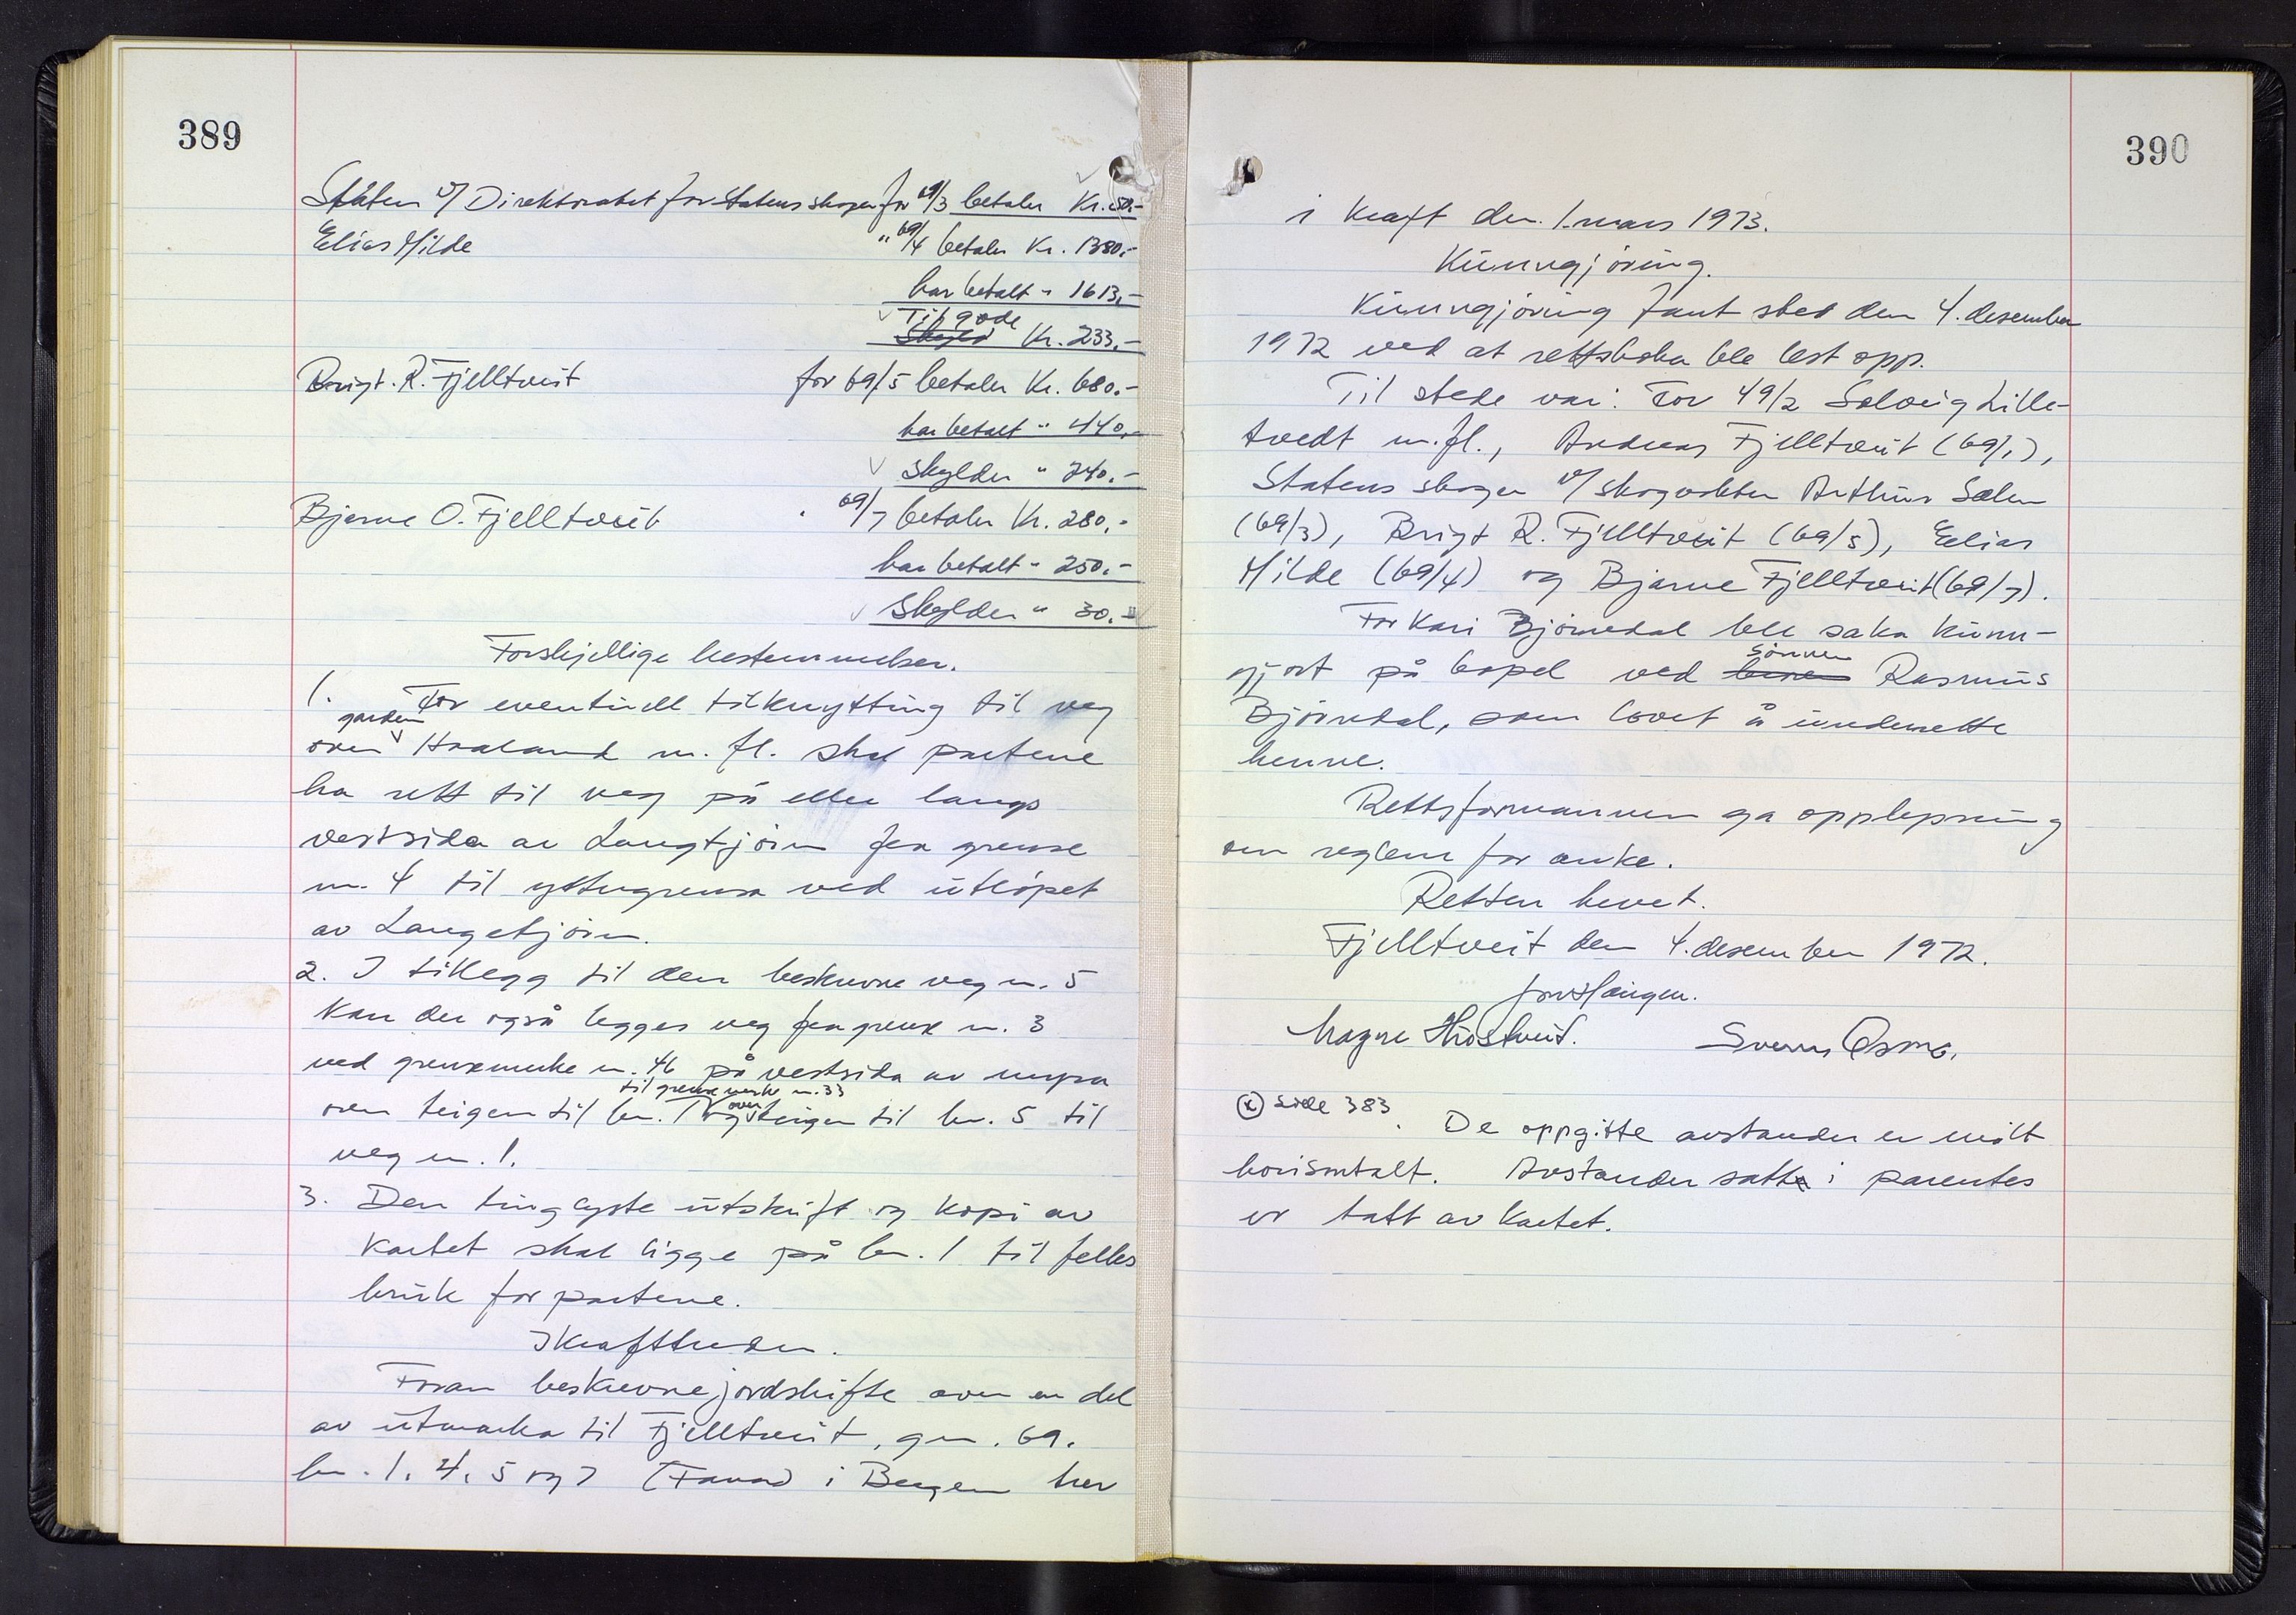 389
Staten v/ Direktoratet for statens skoger for 69/3 betaler Kr. 50.-
Elias Milde " 69/4 betaler Kr. 1380.-
har betalt " 1613,-
Til gode
Skyld Kr. 233.-
Brigt. R. Fjelltveit for 69/5 betaler Kr. 680.-
har betalt " 440.-
skylder " 240.-
Bjarne O. Fjelltveit " 69/7 betaler Kr. 280.-
har betalt " 250.-
skylder " 30.-
Forskjellige bestemmelser.
1. For eventuell tilknytting til veg
garden
over Haaland m. fl. skal partene
ha rett til veg på eller langs
vestsida av Langtjørn fra grense
nr. 4 til yttergrensa ved utløpet
av Langetjørn.
2. I tillegg til den beskrevne veg nr. 5
kan der også legges veg fra grense nr. 3
ved grensemerke nr. 46 på vestsida av myra
til grensemerke nr. 33
over teigen til br. 1 og over teigen til br. 5 til
veg nr. 1.
3. Den tinglyste utskrift og kopi av
kartet skal ligge på br. 1 til felles
bruk for partene.
Ikrafttreden.
Foran beskrevne jordskifte over en del
av utmarka til Fjelltveit, gnr. 69.
br. 1. 4. 5 og 7 (Fana) i Bergen trer
390
i kraft den 1. mars 1973.
Kunngjøring.
Kunngjøring fant sted den 4. desember
1972 ved at rettsboka ble lest opp.
Til stede var: For 49/2 Solveig Lille-
tvedt m.fl., Andreas Fjelltveit (69/1),
Statens skoger v/ skogvokter Arthur Sælen
(69/3), Brigt R. Fjelltveit (69/5), Elias
Milde (69/4) og Bjarne Fjelltveit (69/7).
For Kari Bjørndal ble saka kunn-
sønnen
gjort på bopel ved Rasmus
Bjørndal, som lovet å underrette
henne.
Rettsformannen ga opplysning
om reglene for anke.
Retten hevet.
Fjelltveit den 4. desember 1972.
Magne Hrostveit.
(x) side 383. De oppgitte avstander er målt
horisontalt. Avstander satt i parentes
er tatt av kartet.